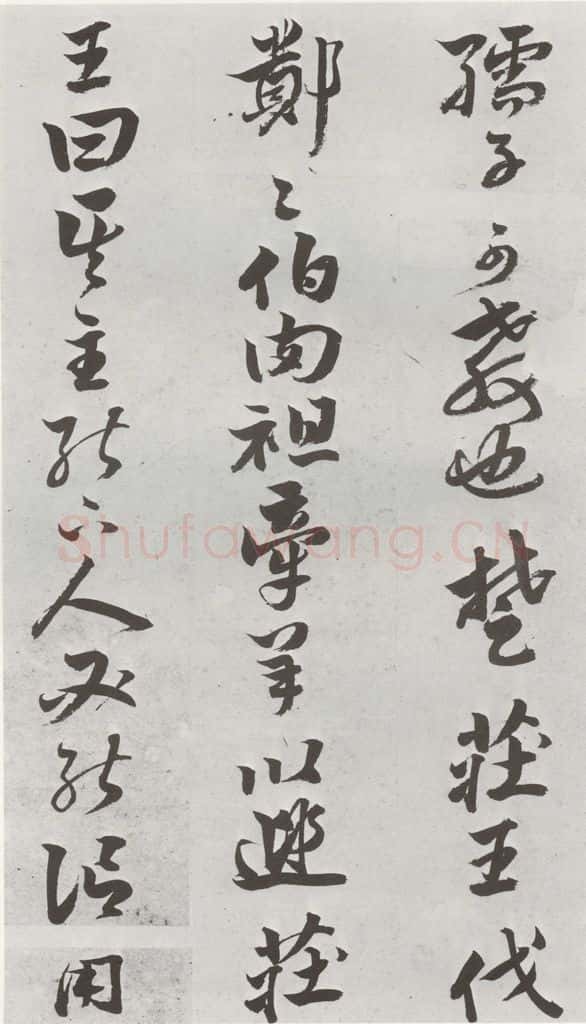 孺子可教也楚莊王伐
鄭〻伯肉袒牽羊以逆莊
王曰其主能下人必能信用
Shufawang.CN